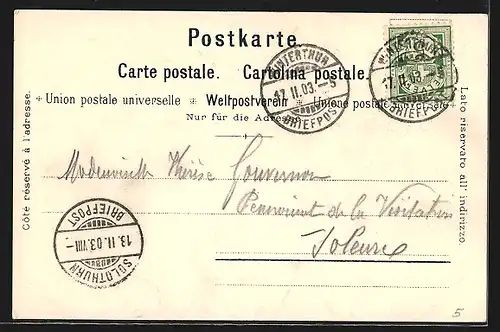 Postkarte.
Carte postale. Cartolina postale.
Union postale universelle ✳ Weltpostverein ✳ Unione postale universale
Nur für die Adresse
Côté réservé à l'adresse.
Lato riservato all' indirizzo.
WINTERTHUR
12.II.03.–5
BRIEFPOST
WINTERTHUR
12.II.03.–
BRIEFPOST
Thérèse Gouvernon
Pensionnat de la Visitation
Soleure
SOLOTHURN
13.II.03.VIII–
BRIEFPOST
5